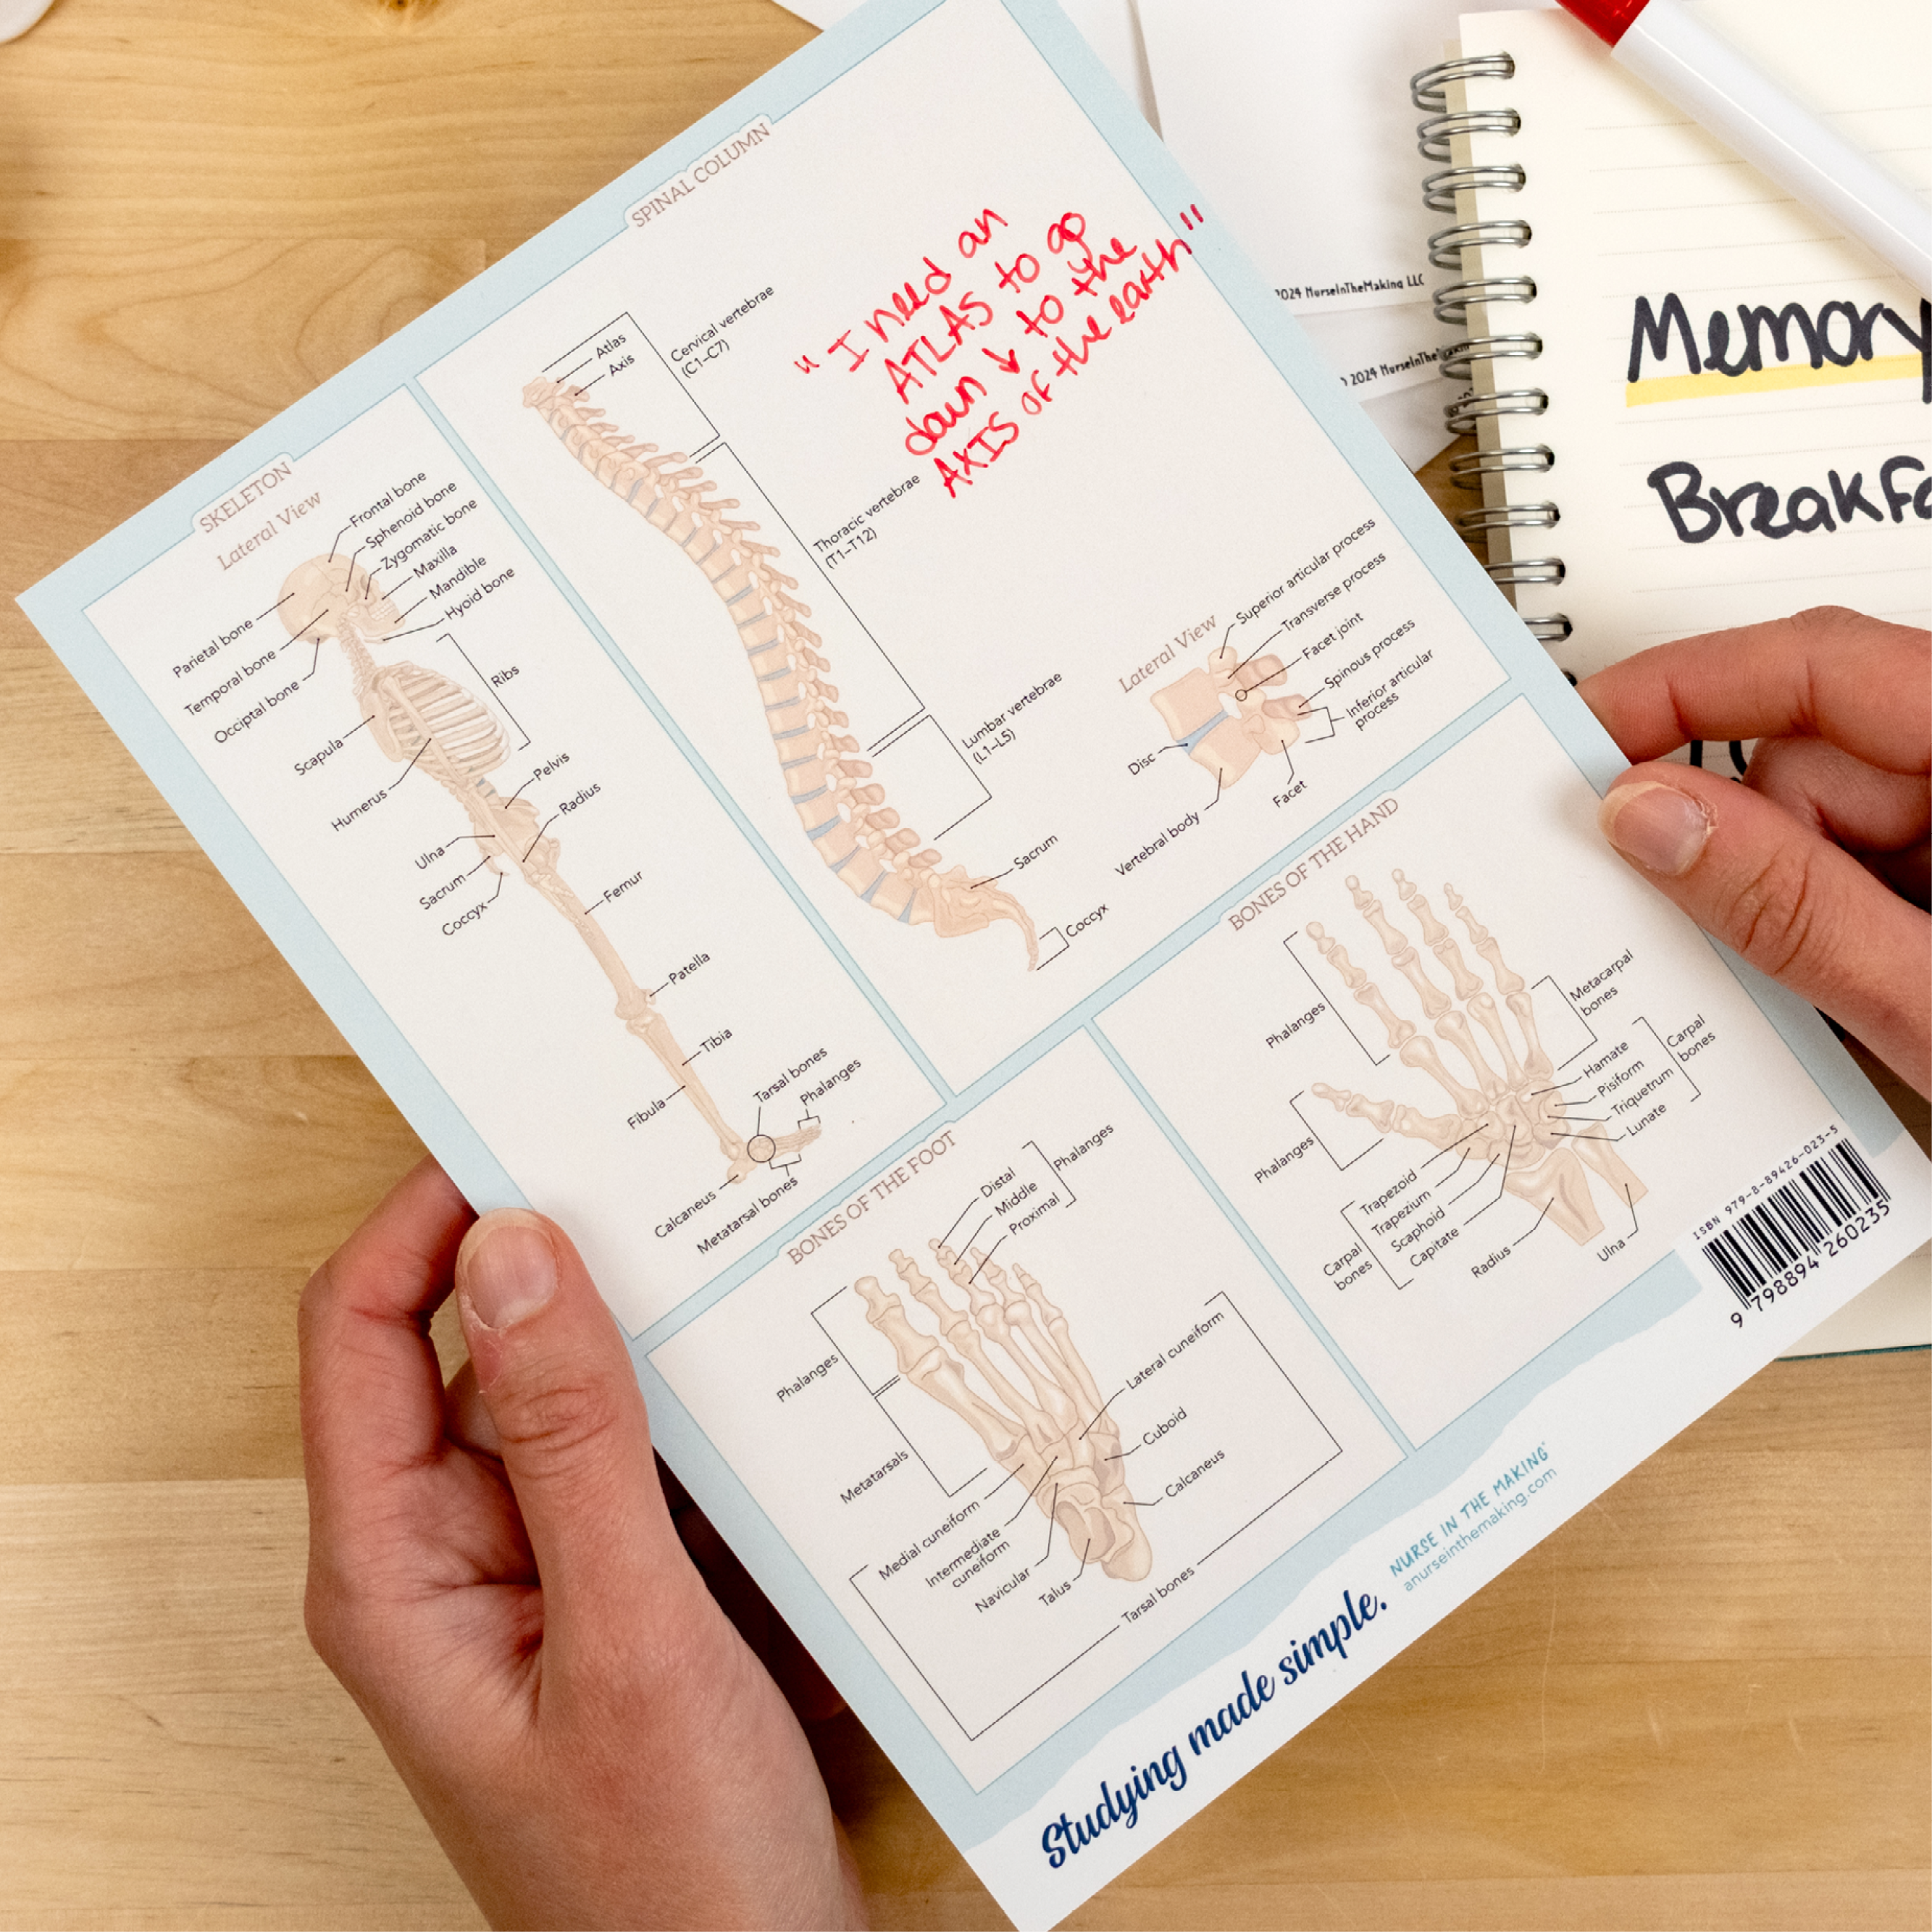 SPINAL COLUMN
Atlas
Axis
Cervical vertebrae
(C1–C7)
"I need an
ATLAS to go
down ↓ to the
AXIS of the earth"
Thoracic vertebrae
(T1–T12)
Lumbar vertebrae
(L1–L5)
Sacrum
Coccyx
Lateral View
Superior articular process
Transverse process
Facet joint
Spinous process
Inferior articular
process
Disc
Vertebral body
Facet
SKELETON
Lateral View
Frontal bone
Sphenoid bone
Zygomatic bone
Maxilla
Mandible
Hyoid bone
Parietal bone
Temporal bone
Occiptal bone
Ribs
Scapula
Humerus
Pelvis
Radius
Ulna
Sacrum
Coccyx
Femur
Patella
Tibia
Fibula
Tarsal bones
Phalanges
Calcaneus
Metatarsal bones
BONES OF THE FOOT
Distal
Middle
Proximal
Phalanges
Phalanges
Metatarsals
Lateral cuneiform
Cuboid
Calcaneus
Medial cuneiform
Intermediate
cuneiform
Navicular
Talus
Tarsal bones
BONES OF THE HAND
Phalanges
Phalanges
Metacarpal
bones
Hamate
Pisiform
Triquetrum
Lunate
Carpal
bones
Trapezoid
Trapezium
Scaphoid
Capitate
Carpal
bones
Radius
Ulna
ISBN 979-8-89426-023-5
9 798894 260235
Studying made simple.
NURSE IN THE MAKING
anurseinthemaking.com
2024 NurseInTheMaking LLC
2024
Memory
Breakfa